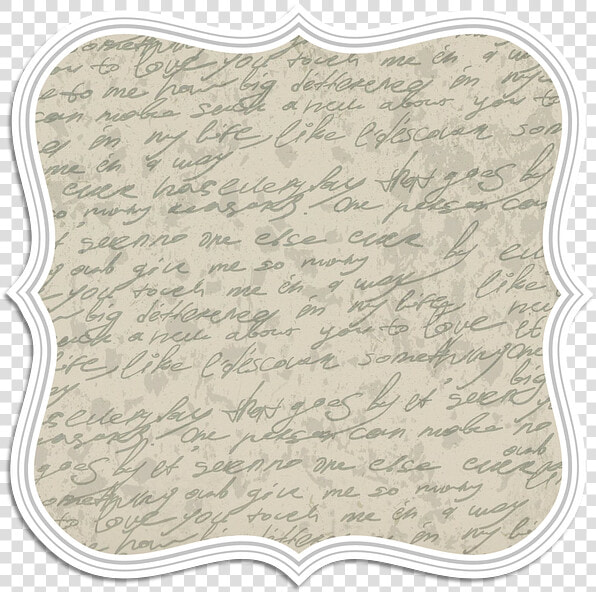 something
to love you touch me in a way
to me how big difference in my
can make such a new about you to
in my life like I discover som
me in a way
ever has everyday that goes by
so many reasons. One person can
it seem no one else ever by
and give me so many
you touch me in a way like
big difference in my life
a new about you to love it
life like I discover something one
big
everyday that goes by it seem
reasons. One person can make no
goes by it seem no one else ever
something and give me so many
to love you touch me in a way
how big difference in my